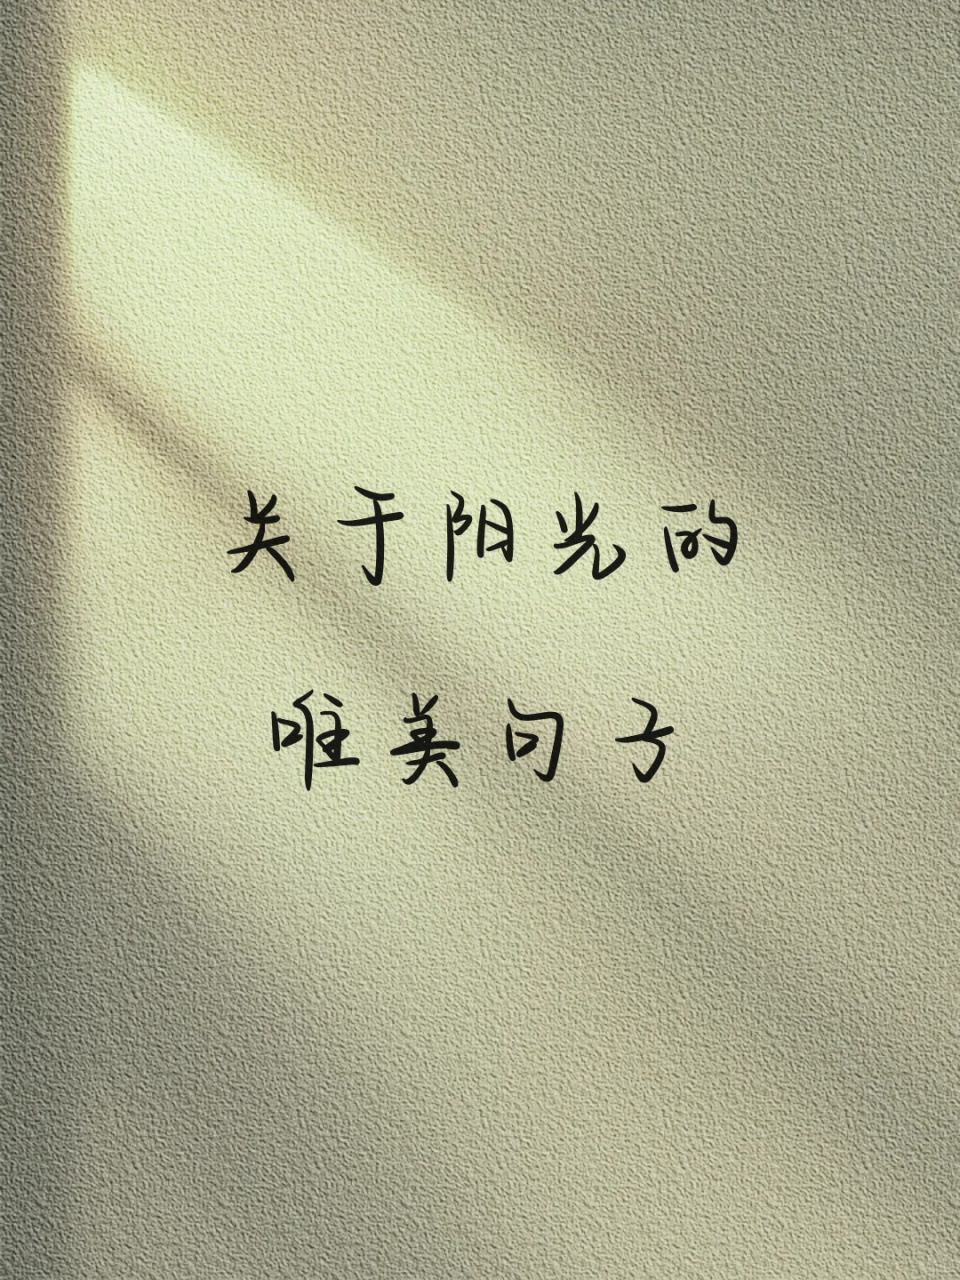 关于阳光的
唯美句子